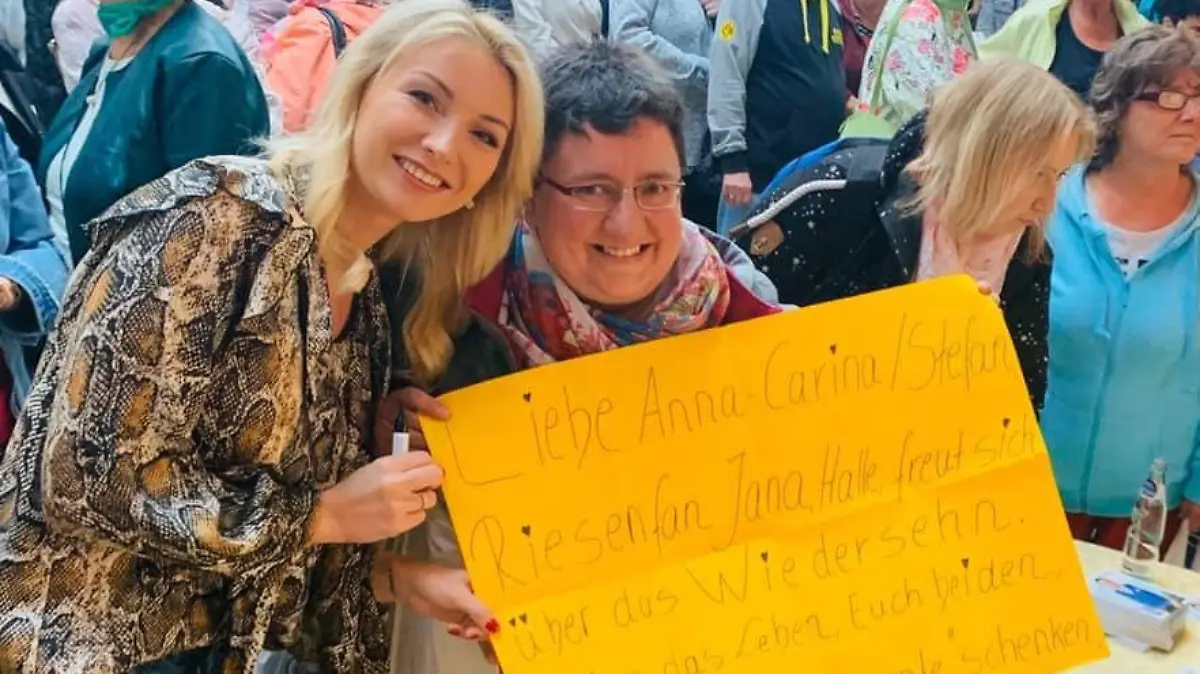 Liebe Anna-Carina/Stefan,
Riesenfan Jana, Halle, freut sich
über das Wiedersehn.
das Leben, Euch beiden,
schenken